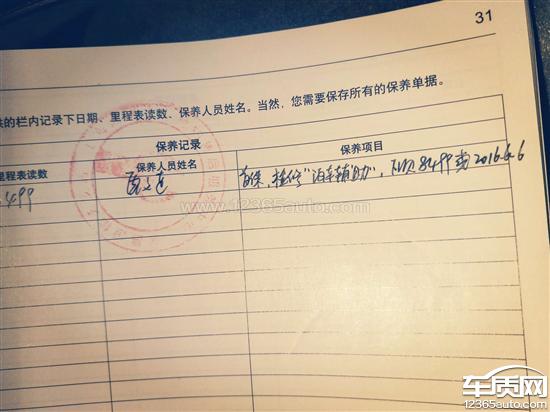 31
的栏内记录下日期、里程表读数、保养人员姓名。当然，您需要保存所有的保养单据。
保养记录
保养项目
里程表读数
保养人员姓名
499
首保，检修"泊车辅助"，下次8499或2016.6.6
www.12365auto.com
车质网
12365auto.com